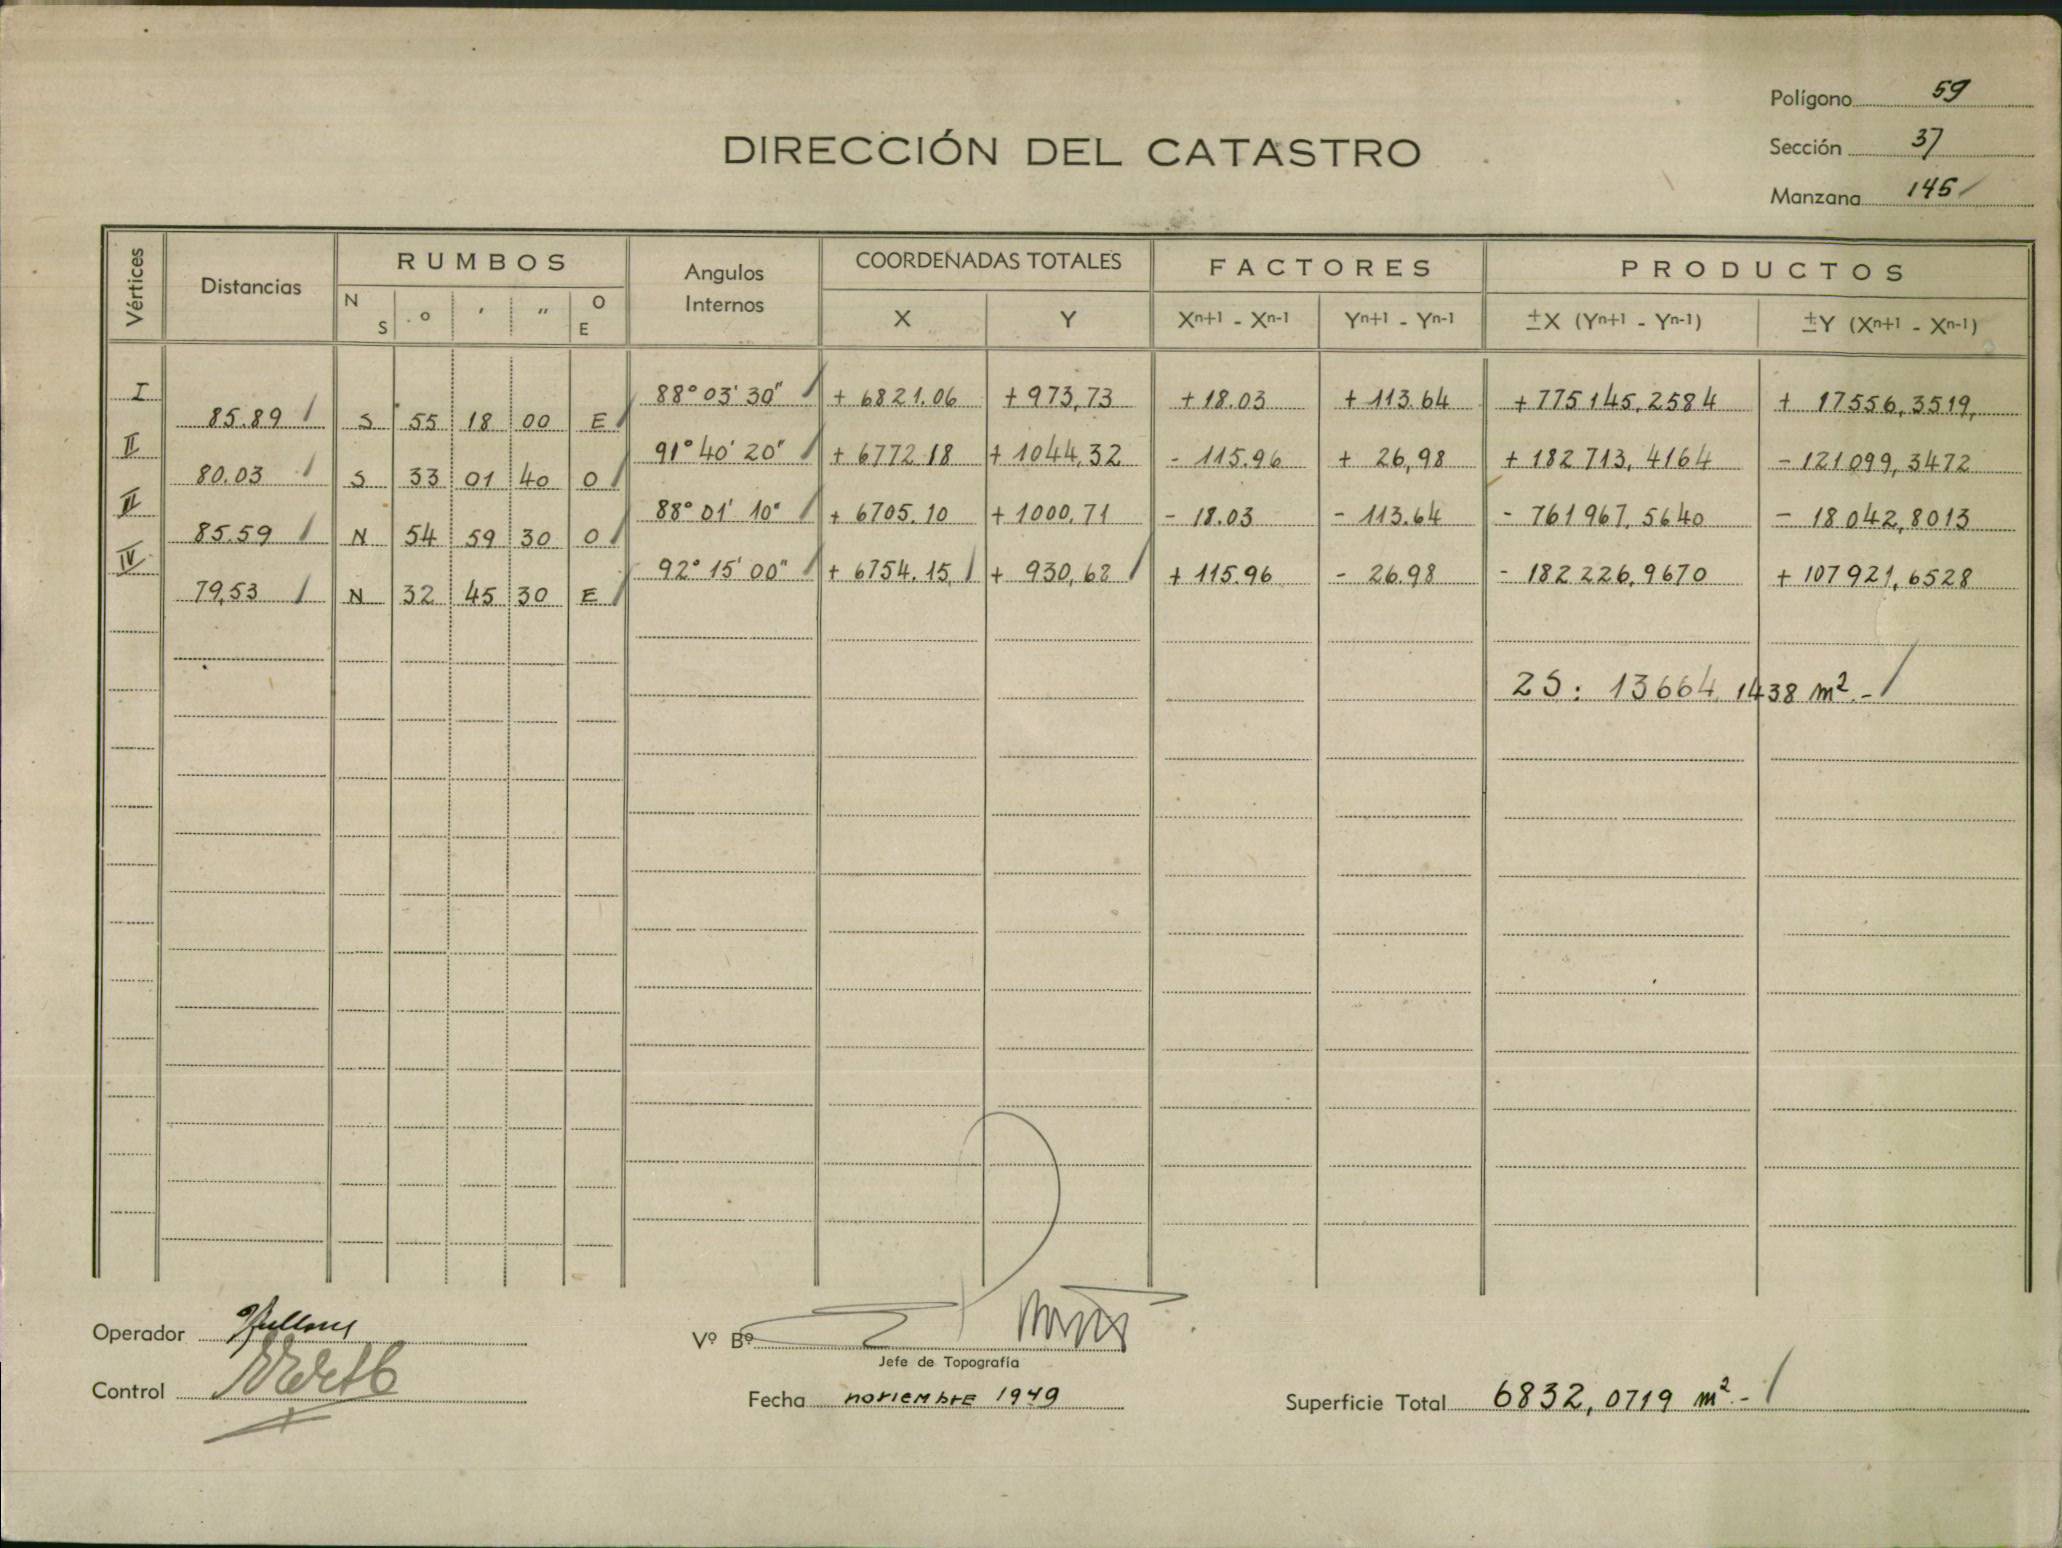 Polígono 59
DIRECCIÓN DEL CATASTRO
Sección 37
Manzana 145
Vértices Distancias RUMBOS Angulos Internos COORDENADAS TOTALES FACTORES PRODUCTOS
N S ° ' " O E X Y Xⁿ⁺¹ - Xⁿ⁻¹ Yⁿ⁺¹ - Yⁿ⁻¹ ±X (Yⁿ⁺¹ - Yⁿ⁻¹) ±Y (Xⁿ⁺¹ - Xⁿ⁻¹)
I 88° 03' 30" + 6821.06 + 973,73 + 18.03 + 113.64 + 775145,2584 + 17556,3519,
85.89 S 55 18 00 E
II 91° 40' 20" + 6772 18 + 1044,32 - 115.96 + 26,98 + 182 713,4164 - 121099,3472
80.03 S 33 01 40 O
II 88° 01' 10" + 6705.10 + 1000,71 - 18.03 - 113.64 - 761967,5640 - 18042,8013
85.59 N 54 59 30 O
IV 92° 15' 00" + 6754.15 + 930,68 + 115.96 - 26.98 - 182 226,9670 + 107921,6528
79,53 N 32 45 30 E
2S: 13664,1438 m².-
Operador
Vº Bº
Jefe de Topografía
Control
Fecha noviembre 1949
Superficie Total 6832,0719 m².-